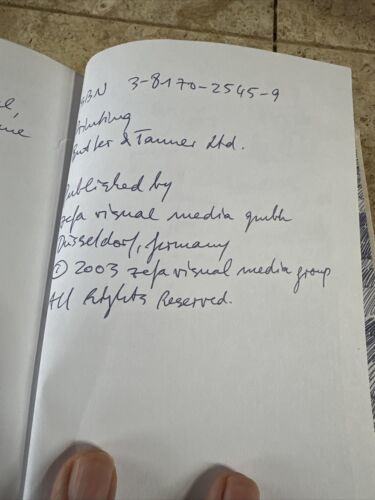 ISBN 3-8170-2545-9
Printing
Butler & Tanner Ltd.
Published by
zefa visual media gmbh
Düsseldorf, Germany
© 2003 zefa visual media group
All Rights Reserved.